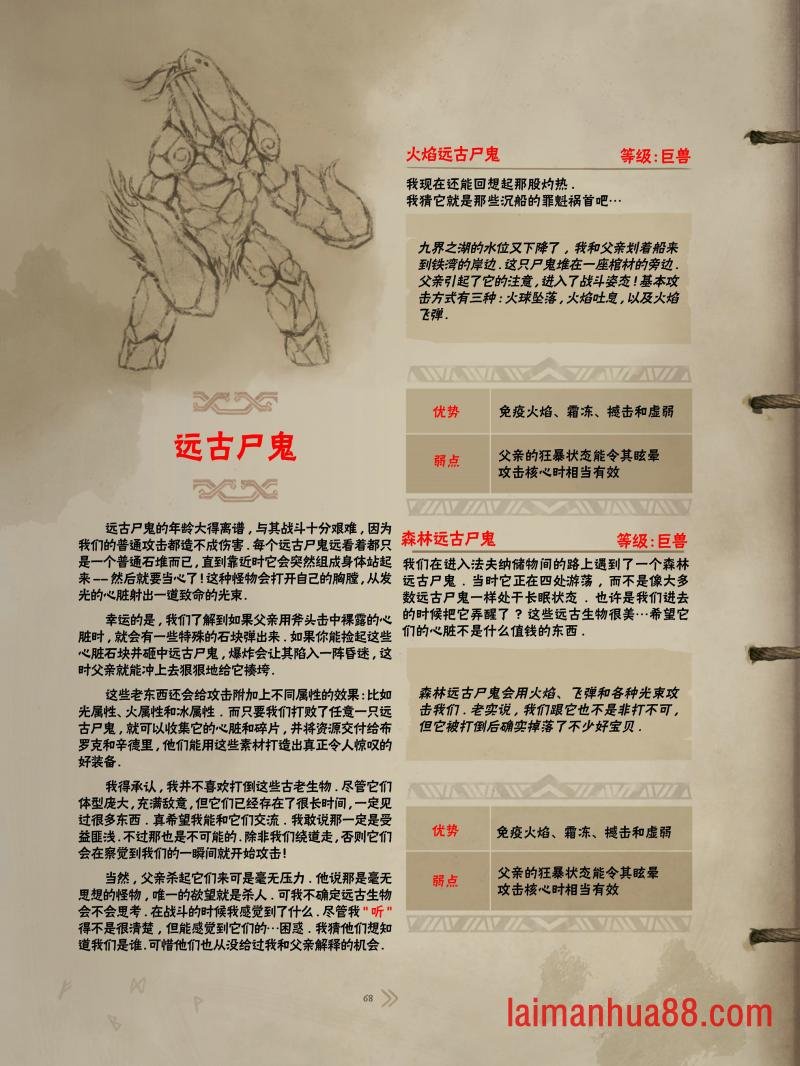 远古尸鬼
远古尸鬼的年龄大得离谱，与其战斗十分艰难，因为
我们的普通攻击都造不成伤害．每个远古尸鬼远看着都只
是一个普通石堆而已，直到靠近时它会突然组成身体站起
来——然后就要当心了！这种怪物会打开自己的胸膛，从发
光的心脏射出一道致命的光束．
幸运的是，我们了解到如果父亲用斧头击中裸露的心
脏时，就会有一些特殊的石块弹出来．如果你能捡起这些
心脏石块并砸中远古尸鬼，爆炸会让其陷入一阵昏迷，这
时父亲就能冲上去狠狠地给它揍垮．
这些老东西还会给攻击附加上不同属性的效果：比如
光属性、火属性和冰属性．而只要我们打败了任意一只远
古尸鬼，就可以收集它的心脏和碎片，并将资源交付给布
罗克和辛德里，他们能用这些素材打造出真正令人惊叹的
好装备．
我得承认，我并不喜欢打倒这些古老生物．尽管它们
体型庞大，充满敌意，但它们已经存在了很长时间，一定见
过很多东西．真希望我能和它们交流．我敢说那一定是受
益匪浅．不过那也是不可能的．除非我们绕道走，否则它们
会在察觉到我们的一瞬间就开始攻击！
当然，父亲杀起它们来可是毫无压力．他说那是毫无
思想的怪物，唯一的欲望就是杀人．可我不确定远古生物
会不会思考．在战斗的时候我感觉到了什么．尽管我"听"
得不是很清楚，但能感觉到它们的…困惑．我猜他们想知
道我们是谁．可惜他们也从没给过我和父亲解释的机会．
火焰远古尸鬼 等级：巨兽
我现在还能回想起那股灼热．
我猜它就是那些沉船的罪魁祸首吧…
九界之湖的水位又下降了，我和父亲划着船来
到铁湾的岸边．这只尸鬼堆在一座棺材的旁边．
父亲引起了它的注意，进入了战斗姿态！基本攻
击方式有三种：火球坠落，火焰吐息，以及火焰
飞弹．
优势 免疫火焰、霜冻、撼击和虚弱
弱点 父亲的狂暴状态能令其眩晕
攻击核心时相当有效
森林远古尸鬼 等级：巨兽
我们在进入法夫纳储物间的路上遇到了一个森林
远古尸鬼．当时它正在四处游荡，而不是像大多
数远古尸鬼一样处于长眠状态．也许是我们进去
的时候把它弄醒了？这些远古生物很美…希望它
们的心脏不是什么值钱的东西．
森林远古尸鬼会用火焰、飞弹和各种光束攻
击我们．老实说，我们跟它也不是非打不可，
但它被打倒后确实掉落了不少好宝贝．
优势 免疫火焰、霜冻、撼击和虚弱
弱点 父亲的狂暴状态能令其眩晕
攻击核心时相当有效
68
laimanhua88.com